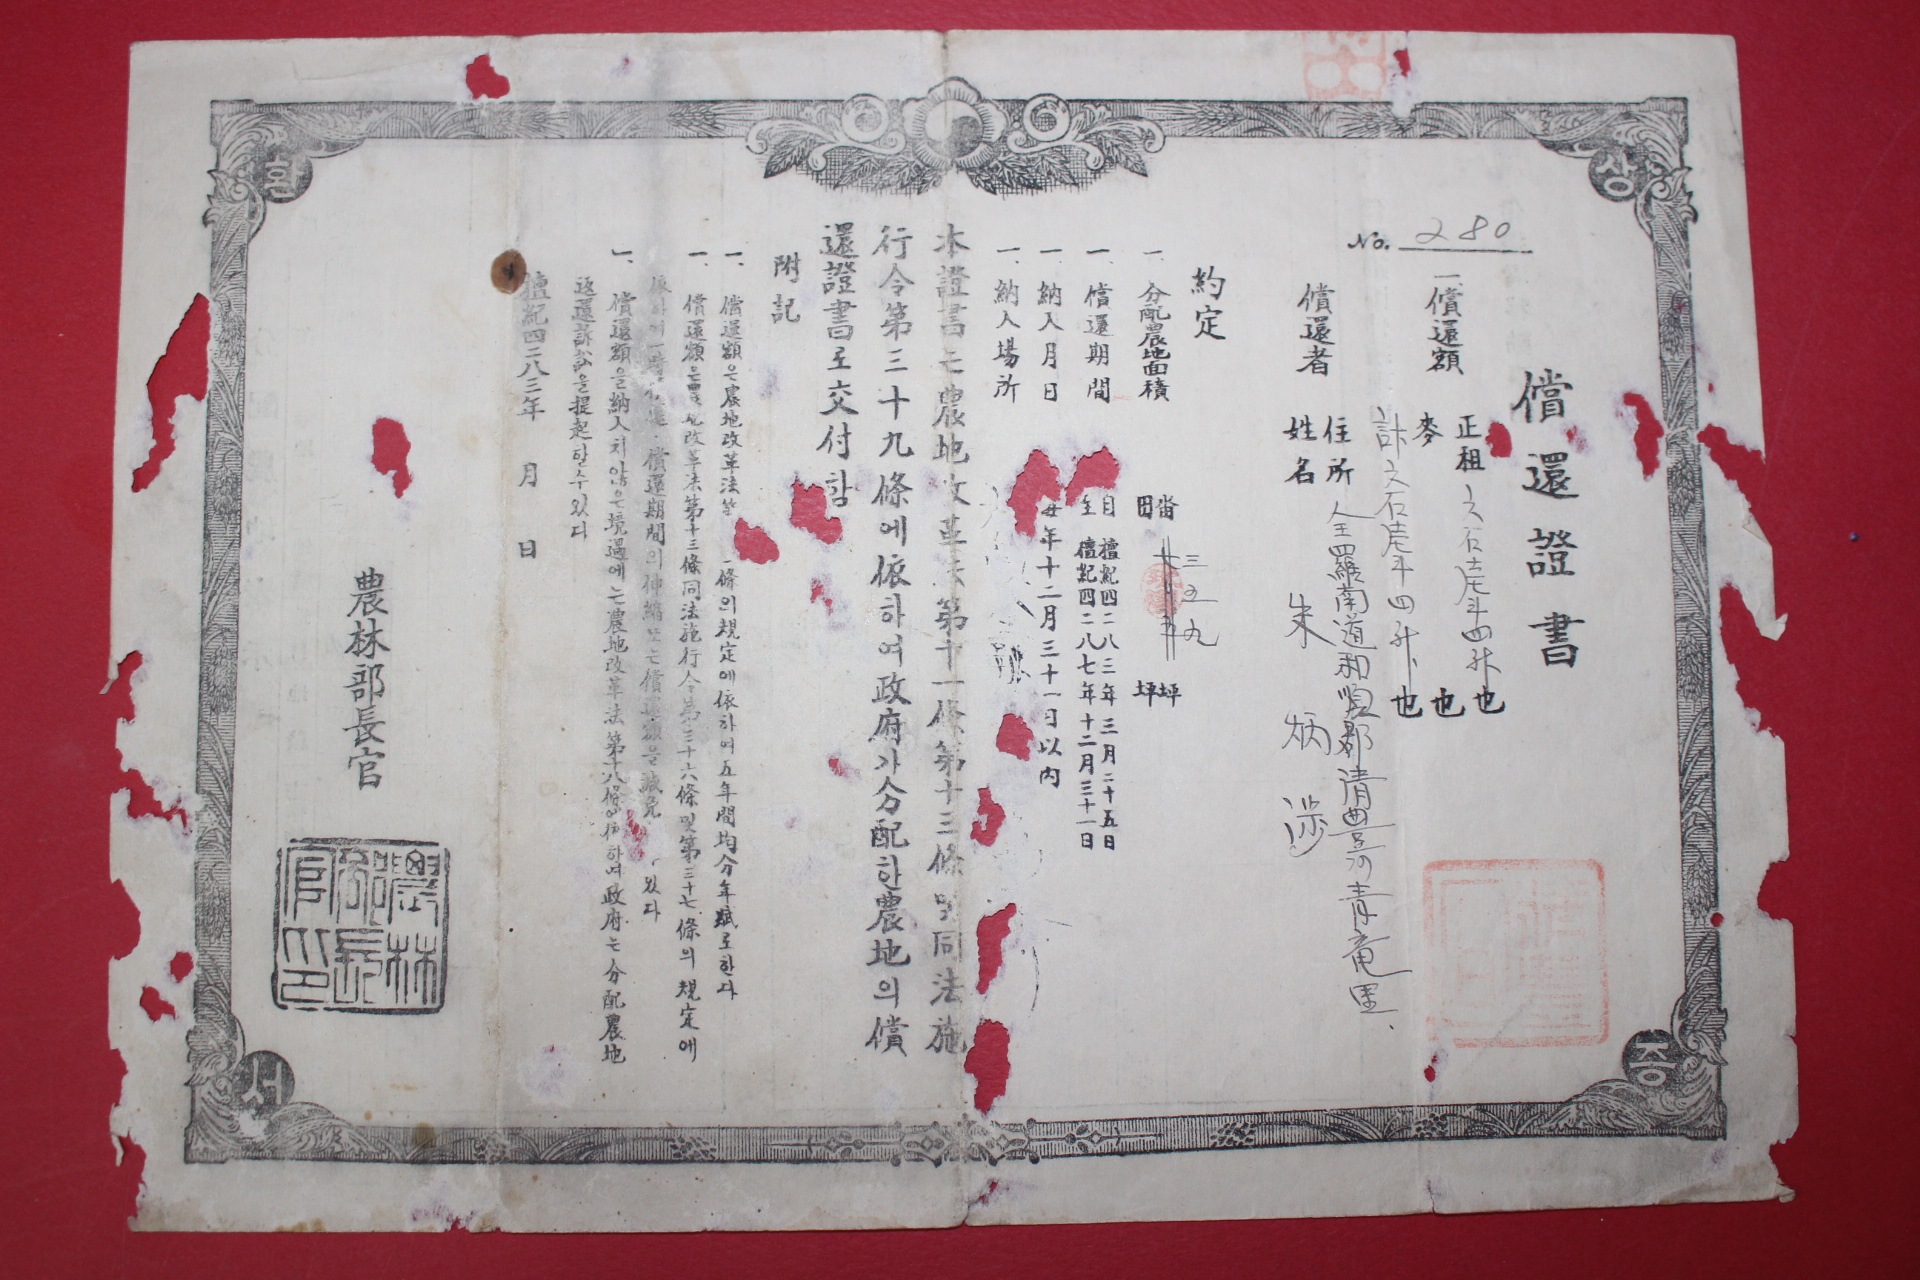 상환증서
No. 280
償還證書
一、償還額
正租 六石壱斗四升也
麥 也
計 六石壱斗四升也
償還者
住所 全羅南道和順郡清豊面青竜里
姓名 朱炳涉
約定
一、分配農地面積
畓 三五九 坪
田 坪
一、償還期間
自 檀紀四二八三年三月二十五日
至 檀紀四二八七年十二月三十一日
一、納入月日 每年十二月三十一日以內
一、納入場所
本證書는農地改革法第十一條第十三條및同法施
行令第三十九條에依하여政府가分配한農地의償
還證書로交付함
附記
一、償還額은農地改革法第 條의規定에依하여五年間均分年賦로한다
一、償還額은農地改革法第十三條同法施行令第三十六條및第三十七條의規定에
依하여一時 償還期間의伸縮또는償還額을減免 있다
一、償還額을納入치않은境遇에는農地改革法第十八條에依하여政府는分配農地
返還訴訟을提起할수있다
檀紀四二八三年 月 日
農林部長官
農林部長官印